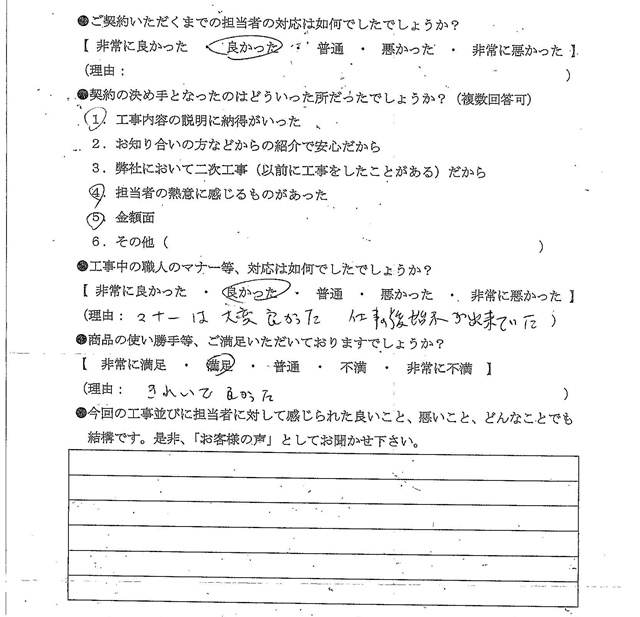 ●ご契約いただくまでの担当者の対応は如何でしたでしょうか？
【 非常に良かった ・ 良かった ・ 普通 ・ 悪かった ・ 非常に悪かった 】
（理由： ）
●契約の決め手となったのはどういった所だったでしょうか？（複数回答可）
１．工事内容の説明に納得がいった
２．お知り合いの方などからの紹介で安心だから
３．弊社において二次工事（以前に工事をしたことがある）だから
４．担当者の熱意に感じるものがあった
５．金額面
６．その他（ ）
●工事中の職人のマナー等、対応は如何でしたでしょうか？
【 非常に良かった ・ 良かった ・ 普通 ・ 悪かった ・ 非常に悪かった 】
（理由：マナーは大変良かった 仕事の後始末が出来ていた）
●商品の使い勝手等、ご満足いただいておりますでしょうか？
【 非常に満足 ・ 満足 ・ 普通 ・ 不満 ・ 非常に不満 】
（理由： きれいで良かった ）
●今回の工事並びに担当者に対して感じられた良いこと、悪いこと、どんなことでも
結構です。是非、「お客様の声」としてお聞かせ下さい。